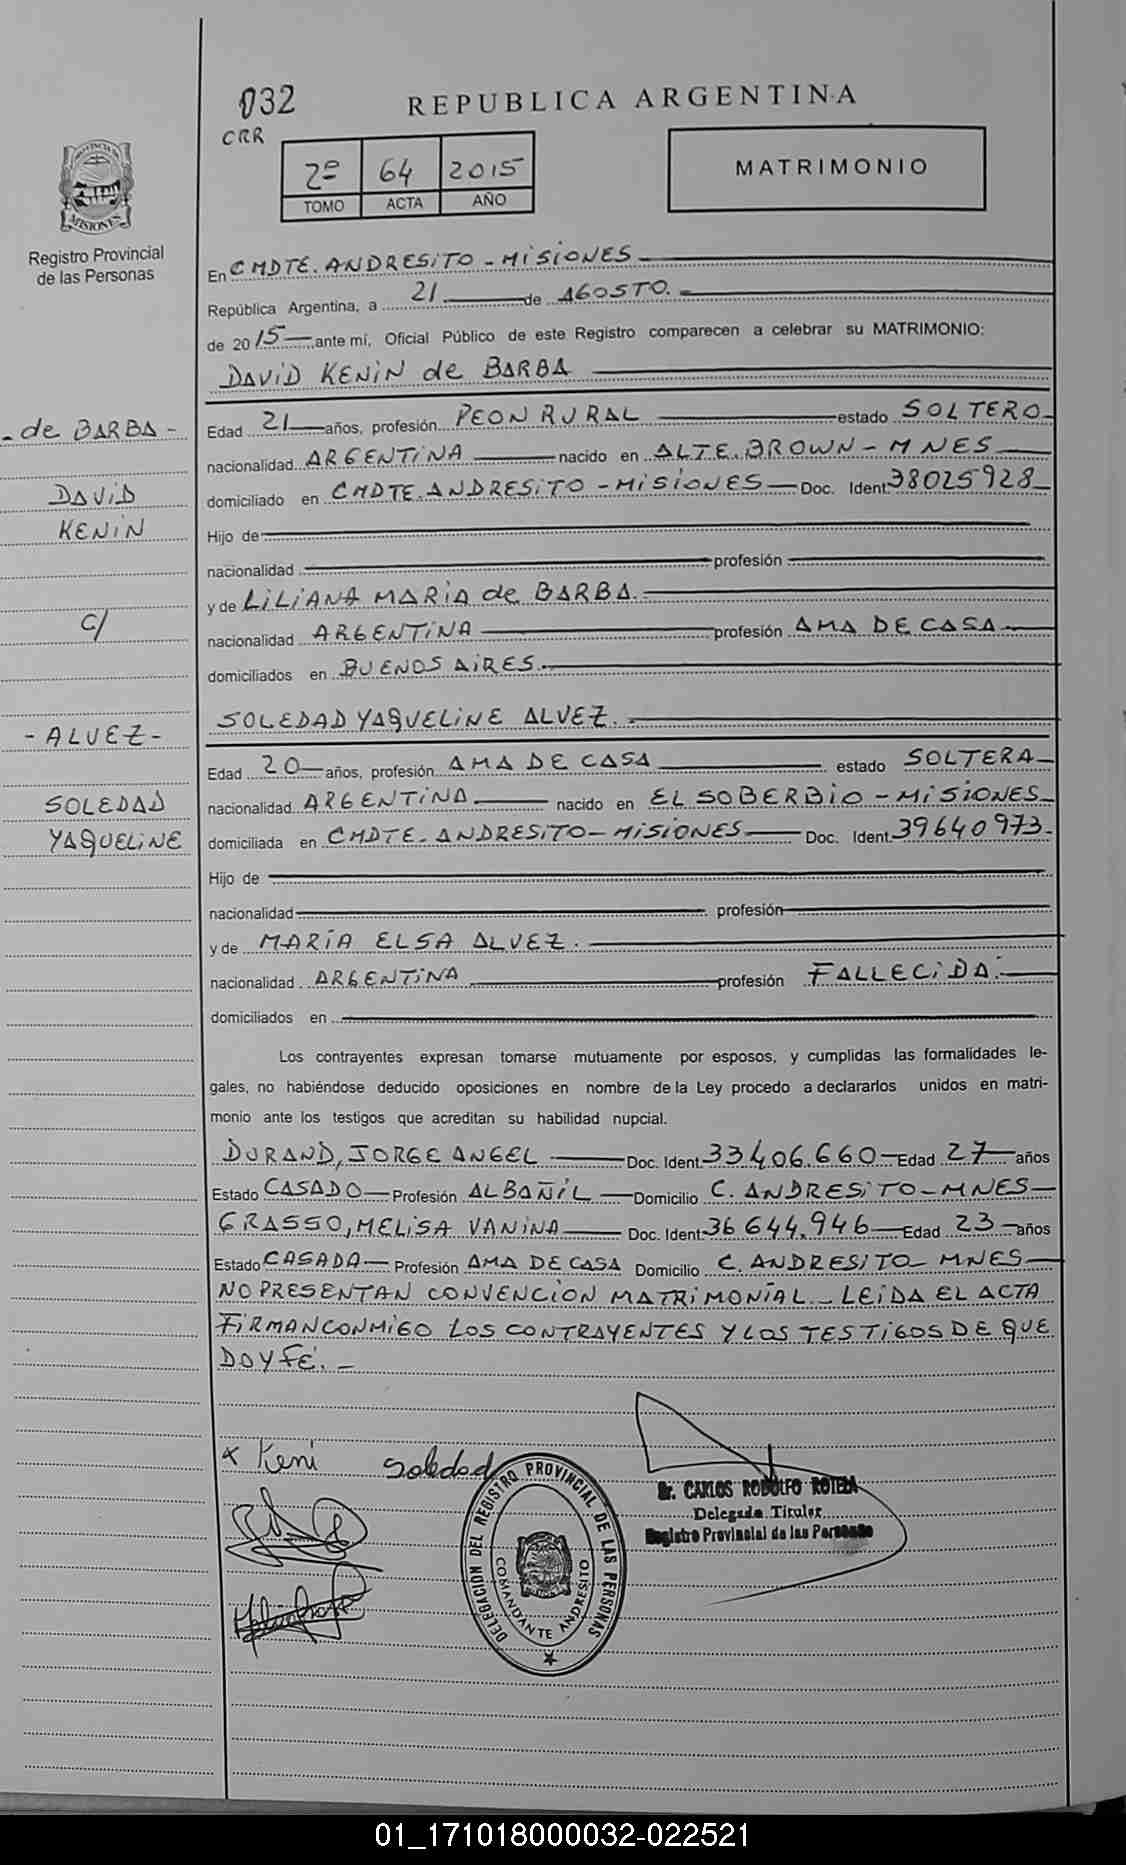 032
REPUBLICA ARGENTINA
CRR
2º 64 2015
TOMO ACTA AÑO
MATRIMONIO
PROVINCIA DE MISIONES
Registro Provincial
de las Personas
En CMDTE. ANDRESITO - MISIONES
República Argentina, a 21 de AGOSTO.
de 2015 ante mí, Oficial Público de este Registro comparecen a celebrar su MATRIMONIO:
DAVID KENIN de BARBA
- de BARBA -
DAVID
KENIN
C/
- ALVEZ -
SOLEDAD
YAQUELINE
Edad 21 años, profesión PEON RURAL estado SOLTERO
nacionalidad ARGENTINA nacido en ALTE. BROWN - MNES
domiciliado en CMDTE. ANDRESITO - MISIONES Doc. Ident. 38025928
Hijo de
nacionalidad profesión
y de LILIANA MARIA de BARBA.
nacionalidad ARGENTINA profesión AMA DE CASA
domiciliados en BUENOS AIRES.
SOLEDAD YAQUELINE ALVEZ.
Edad 20 años, profesión AMA DE CASA estado SOLTERA
nacionalidad ARGENTINA nacido en EL SOBERBIO - MISIONES
domiciliada en CMDTE. ANDRESITO - MISIONES Doc. Ident. 39640973.
Hijo de
nacionalidad profesión
y de MARÍA ELSA ALVEZ.
nacionalidad ARGENTINA profesión FALLECIDA.
domiciliados en
Los contrayentes expresan tomarse mutuamente por esposos, y cumplidas las formalidades le-
gales, no habiéndose deducido oposiciones en nombre de la Ley procedo a declararlos unidos en matri-
monio ante los testigos que acreditan su habilidad nupcial.
DURAND, JORGE ANGEL Doc. Ident. 33406.660 Edad 27 años
Estado CASADO Profesión ALBAÑIL Domicilio C. ANDRESITO - MNES
GRASSO, MELISA VANINA Doc. Ident. 36644.946 Edad 23 años
Estado CASADA Profesión AMA DE CASA Domicilio C. ANDRESITO - MNES
NO PRESENTAN CONVENCIÓN MATRIMONIAL. - LEIDA EL ACTA
FIRMAN CONMIGO LOS CONTRAYENTES Y LOS TESTIGOS DE QUE
DOY FÉ. -
x Keni Soledad
DELEGACIÓN DEL REGISTRO PROVINCIAL DE LAS PERSONAS
COMANDANTE ANDRESITO
Sr. CARLOS RODOLFO ROTELA
Delegado Titular
Registro Provincial de las Personas
01_171018000032-022521